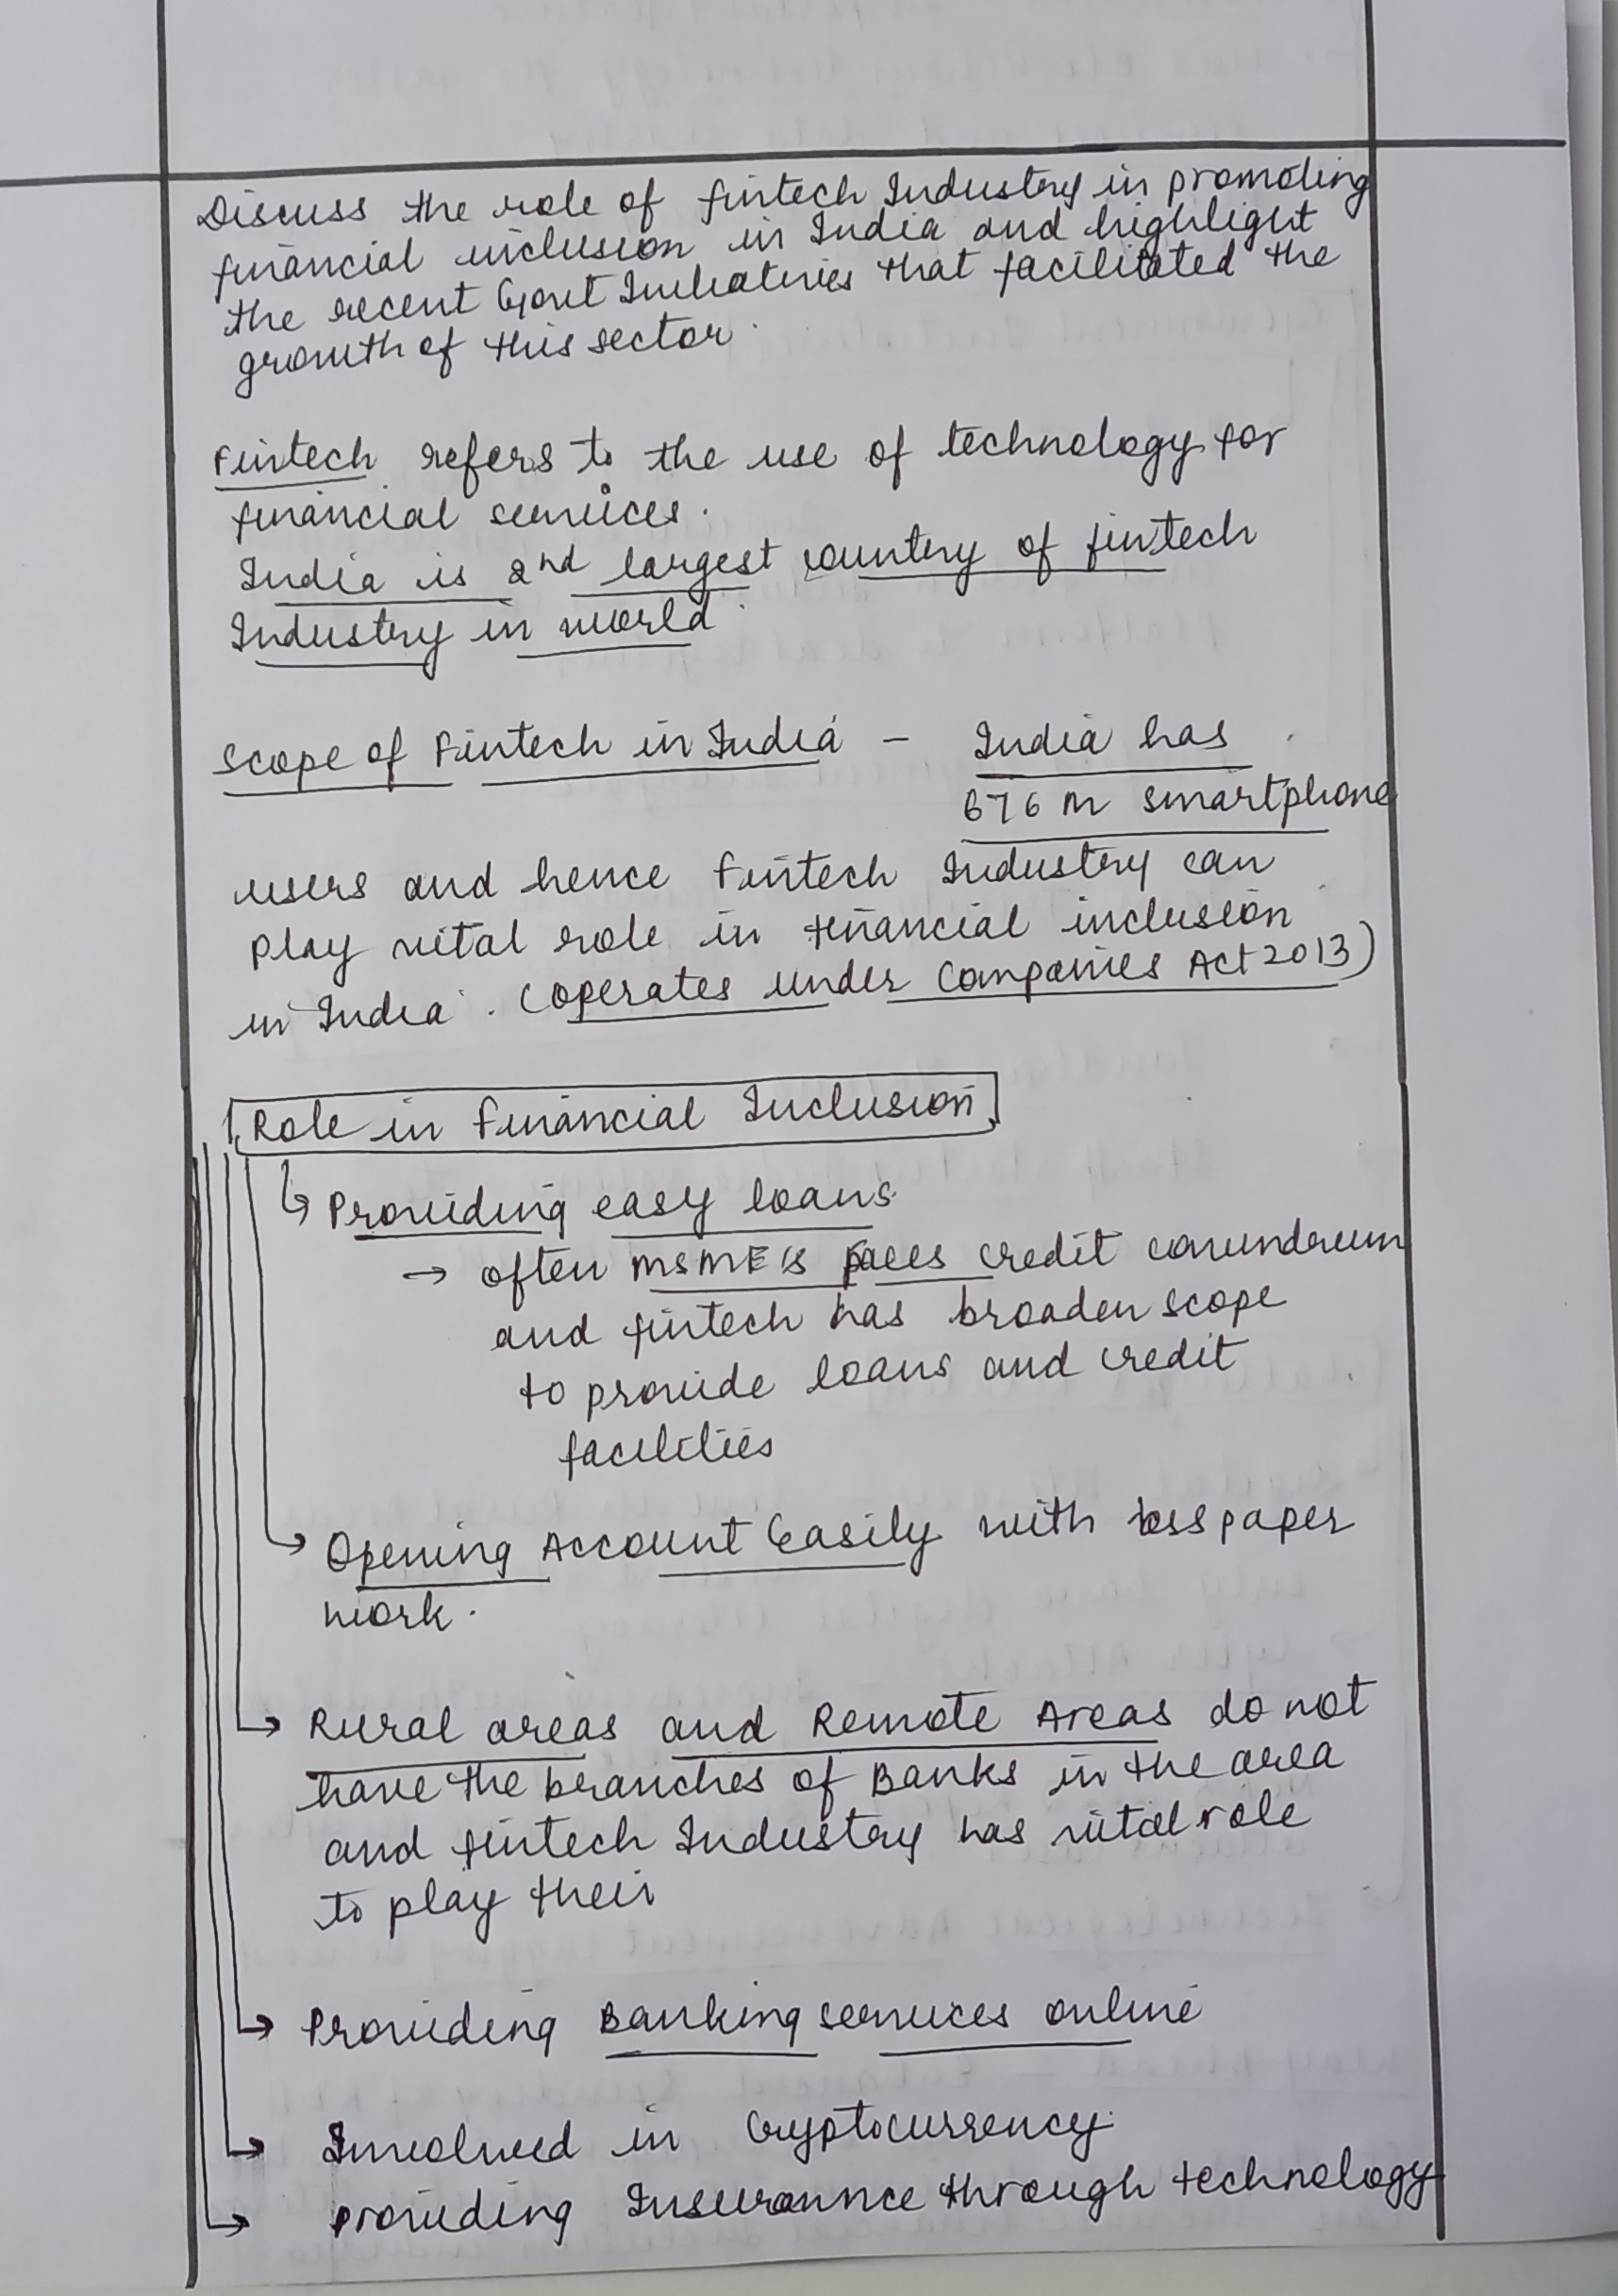 Discuss the role of fintech Industry in promoting
financial inclusion in India and highlight
the recent Govt Initiatives that facilitated the
growth of this sector.
Fintech refers to the use of technology for
financial services.
India is 2nd largest country of fintech
Industry in world.
Scope of Fintech in India - India has
676 m smartphone
users and hence Fintech Industry can
play vital role in financial inclusion
in India. (operates under Companies Act 2013)
Role in Financial Inclusion
Providing easy loans
→ often MSME's faces credit conundrum
and fintech has broaden scope
to provide loans and credit
facilities
Opening Account Easily with less paper
work.
Rural areas and Remote Areas do not
have the branches of Banks in the area
and fintech Industry has vital role
to play their
Providing Banking services online
Involved in Cryptocurrency.
Providing Insurannce through technology